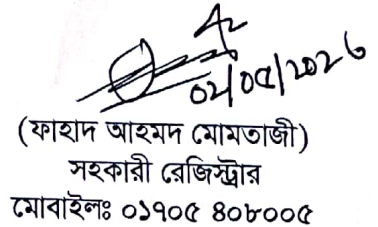 ০২/০৫/২০২৬
(ফাহাদ আহমদ মোমতাজী)
সহকারী রেজিস্ট্রার
মোবাইলঃ ০১৭০৫ ৪০৮০০৫